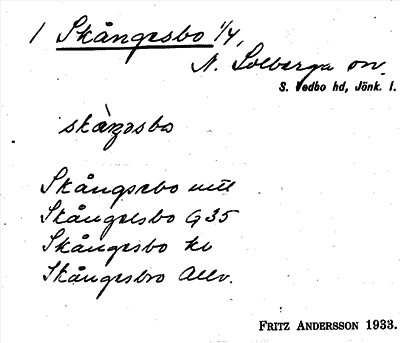 1 Skångesbo 1/4,
N. Solberga sn.
S. Vedbo hd, Jönk. l.
skàŋəsbo
Skångsebo
Skångelsbo G35
Skångesbo kb
Skångesbro Allv.
FRITZ ANDERSSON 1933.